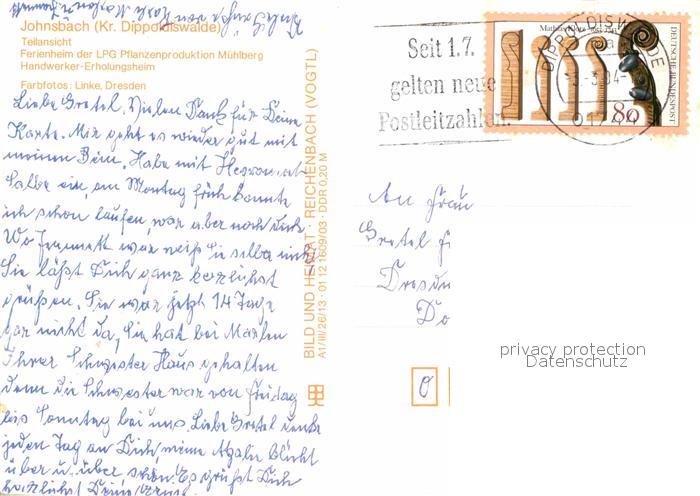 Johnsbach (Kr. Dippoldiswalde)
Teilansicht
Ferienheim der LPG Pflanzenproduktion Mühlberg
Handwerker-Erholungsheim
Farbfotos: Linke, Dresden
Liebe Gretel. Vielen Dank für Deine
Karte. Mir geht es wieder gut mit
meinem Bein. Habe mit
Salbe ein, am Montag früh konnte
ich schon laufen, war aber noch dick.
Wo war weiß sie selbst nicht
Sie läßt Dich ganz herzlichst
grüßen. Sie war jetzt 14 Tage
gar nicht da, Sie hat bei
Ihrer Schwester Haus gehalten
denn die Schwester war von Freitag
bis Sonntag bei uns. Liebe Gretel denke
jeden Tag an Dich, meine Azalie blüht
über u. über, schön! Es grüßt Dich
herzlichst Deine
BILD UND HEIMAT · REICHENBACH (VOGTL)
A1/III/26/13 · 01 12 1609/03 · DDR 0,20 M
Seit 1.7.
gelten neue
Postleitzahlen.
DIPPOLDISWALDE
DEUTSCHE BUNDESPOST
80
An Frau
Gretel
Dresden
privacy protection
Datenschutz